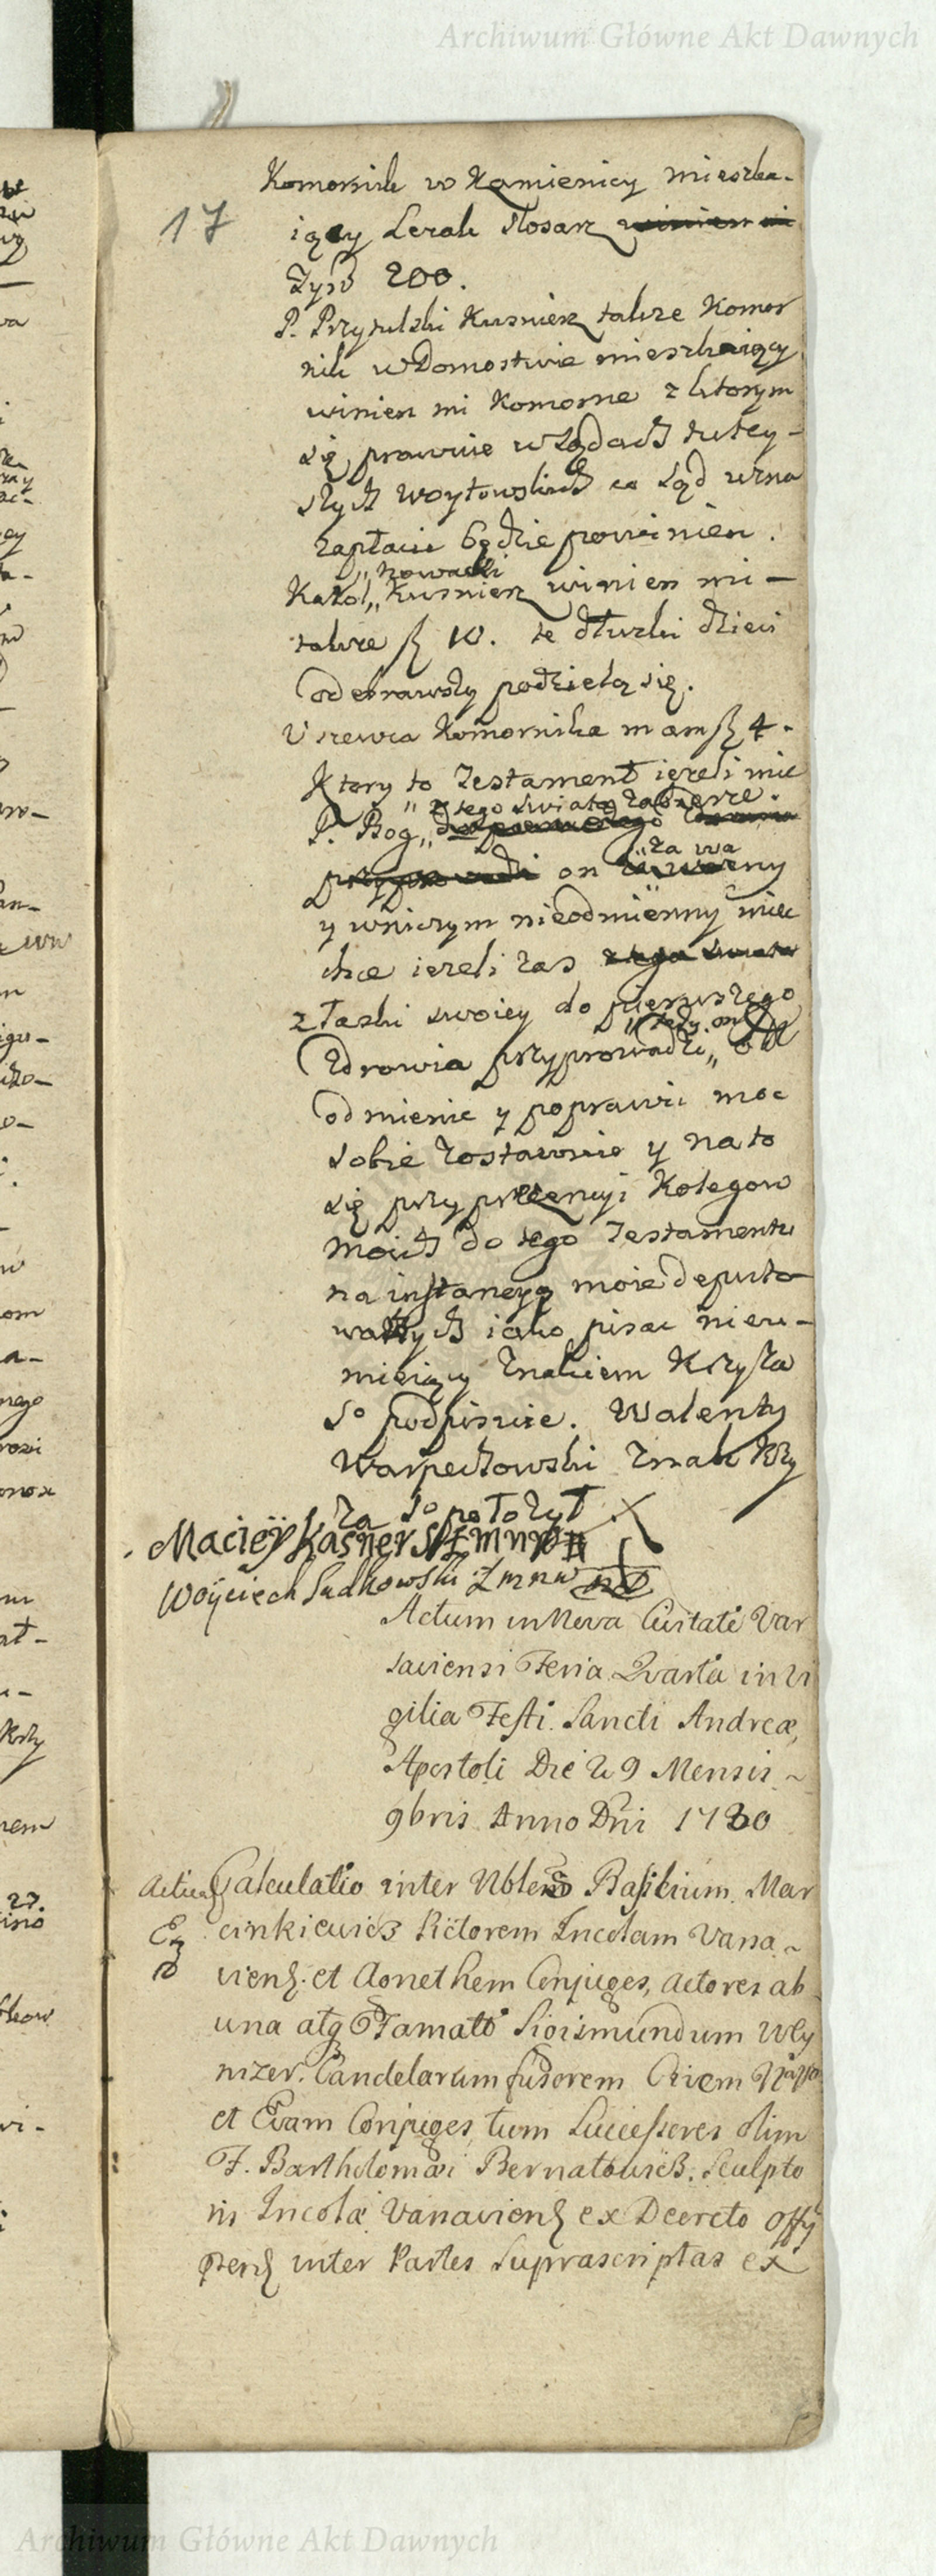 Archiwum Główne Akt Dawnych
17
Komornik w Kamienicy mieszka-
iący Lerak Slosarz winien mi
Tynf 200.
P. Przytulski Kusnierz takze Komor
nik w Domostwie mieszkaiący
winien mi Komorne z ktorym
się prawnie w Sądach tutey-
szych Woytowskich co Sąd uzna
zapłacic będzie powinien.
„Nowacki
Karol„ Kusnierz winien mi -
takze ƒ 10. te dłuzki dzieci
odebrawszy podzielą się.
U szewca Komornika mam ƒ 4.
Ktory to Testament iezeli mie
„z tego swiata zabierze.
P. Bog„ do pierwszego zdrowia
przyprowadzi on
„za wa
zny
y wniczym nieodmienny miec
chce iezeli zas z tego swiata
z łaski swoiey do pierwszego
„tedy on
zdrowia przyprowadzi„
odmienic y poprawic moc
sobie zostawuie y na to
się przy prezencyi Kolegow
moich do tego Testamentu
na instancyą moie deputo
wanych iako pisac nieu-
mieiący znakiem Krzyza
S° podpisuie. Walenty
Warpechowski znak Krzy
za S° położył X
Macieÿ Kasner Ł m n w
Woyciech Sudkowski Ł m n w
Actum in Nova Civitate Var
saviensi Feria Quarta in Vi
gilia Festi Sancti Andreæ,
Apostoli Die 29 Mensis ~
9bris Anno Dni 1780
Calculatio inter Nbles Basilium Mar
cinkiewicz Pictorem Incolam Varsa ~
viens. et Agnethem Conjuges, actores ab
una atq Famatos Sigismundum Wey
nizer Candelarum fusorem Civem
et Evam Conjuges, tum Successores olim
F. Bartholomæi Bernatowicz Sculpto
ris Incolæ Varsaviens ex Decreto Offÿ
inter Partes Suprascriptas ex
Archiwum Główne Akt Dawnych